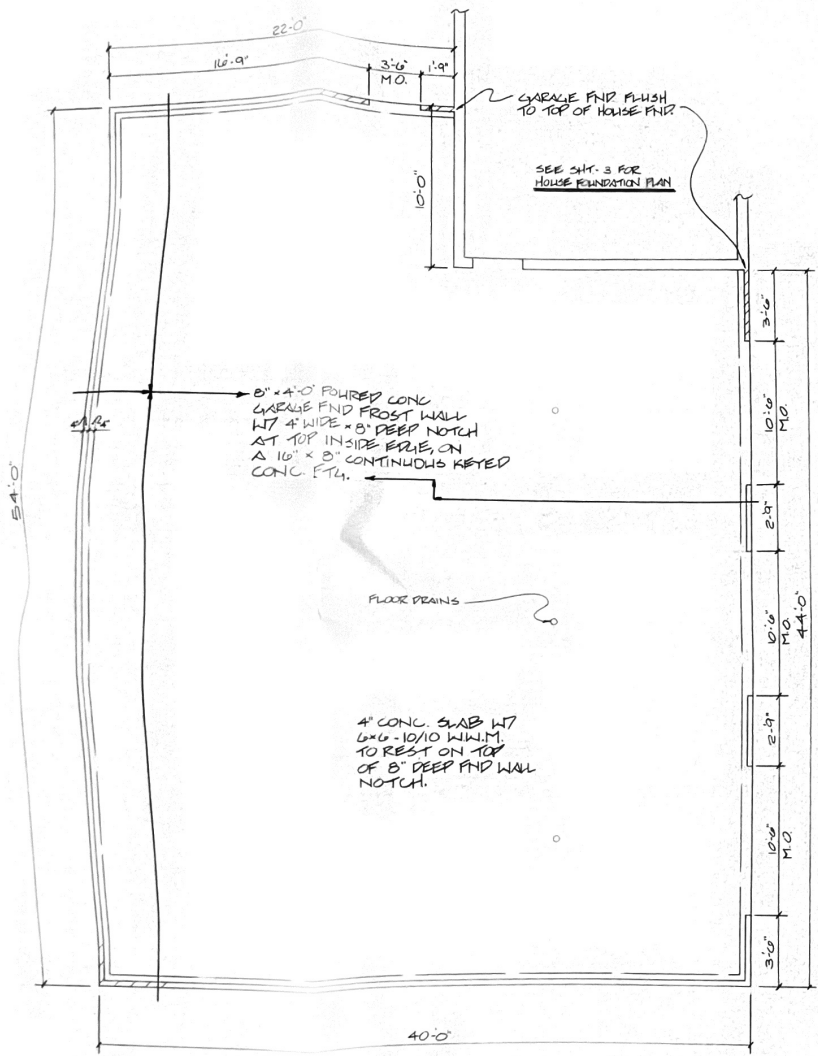 22'-0"
16'-9" 3'-6" 1'-9"
M.O.
GARAGE FND. FLUSH
TO TOP OF HOUSE FND.
SEE SHT. 3 FOR
HOUSE FOUNDATION PLAN
10'-0"
3'-6"
8" x 4'-0" POURED CONC
GARAGE FND FROST WALL
W/ 4" WIDE x 8" DEEP NOTCH
AT TOP INSIDE EDGE, ON
A 16" x 8" CONTINUOUS KEYED
CONC. FTG.
10'-6"
M.O.
4" 4"
54'-0"
2'-9"
FLOOR DRAINS
10'-6"
M.O.
44'-0"
4" CONC. SLAB W/
6x6 - 10/10 W.W.M.
TO REST ON TOP
OF 8" DEEP FND WALL
NOTCH.
2'-9"
10'-6"
M.O.
3'-6"
40'-0"